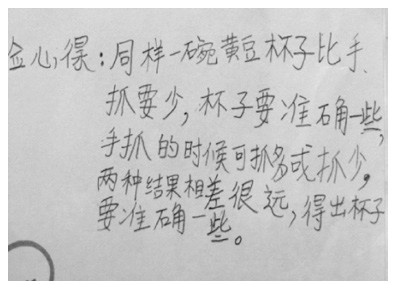 金心得：同样一碗黄豆杯子比手
抓要少，杯子要准确一些，
手抓的时候可抓多或抓少。
两种结果相差很远，得出杯子
要准确一些。